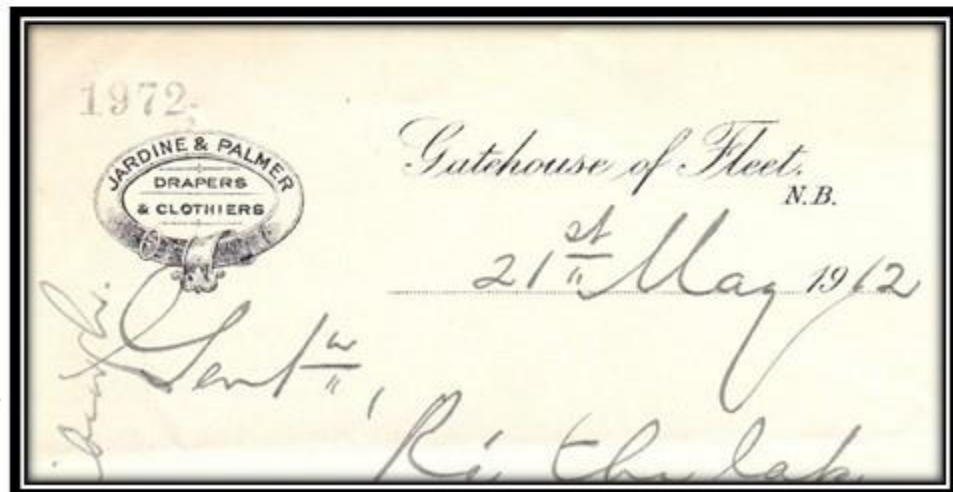 1972
JARDINE & PALMER
DRAPERS
& CLOTHIERS
Gatehouse of Fleet.
N.B.
21st May 1912
Gentn,
Re the late